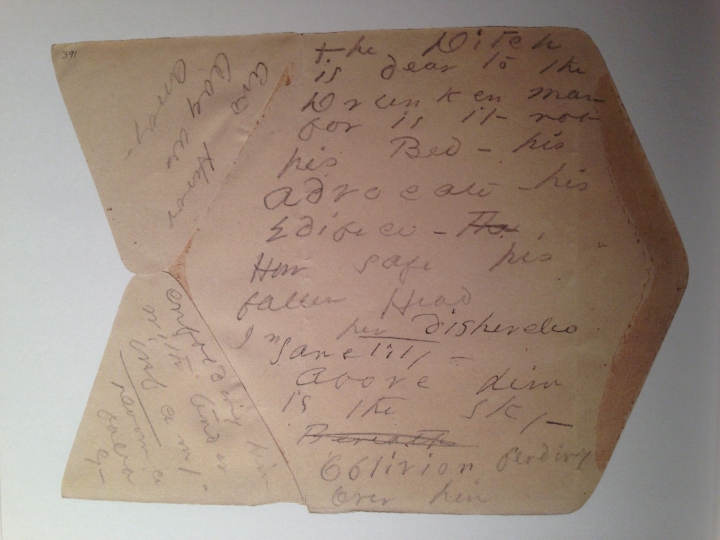 391
the Ditch
is dear to the
Drunken man
for is it not
his Bed - his
Advocate - his
Edifice -
How safe his
fallen Head
In her disheveled
Sanctity -
Above him
is the sky -
Beneath
Oblivion bending
over him
And
Honor
away -
enfolding him
with tender
infamy -
Doom a